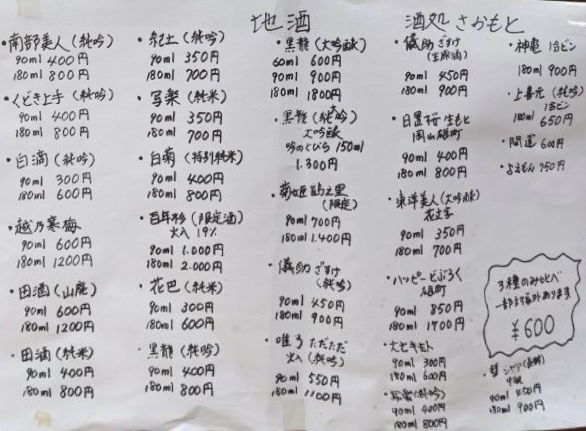 地酒
酒処 さかもと
・南部美人(純吟)
90ml 400円
180ml 800円
・くどき上手(純吟)
90ml 400円
180ml 800円
・白滴(純吟)
90ml 300円
180ml 600円
・越乃寒梅
90ml 600円
180ml 1200円
・田酒(山廃)
90ml 600円
180ml 1200円
・田酒(純米)
90ml 400円
180ml 800円
・紀土(純吟)
90ml 350円
180ml 700円
・写楽(純米)
90ml 350円
180ml 700円
・白菊(特別純米)
90ml 400円
180ml 800円
・百年杉(限定酒)
火入 19%
90ml 1.000円
180ml 2.000円
・花巴(純米)
90ml 300円
180ml 600円
・黒龍(純吟)
90ml 400円
180ml 800円
・黒龍(大吟醸)
60ml 600円
90ml 900円
180ml 1800円
・黒龍(純吟)
大吟醸
吟のとびら 150ml
1.300円
・菊姫 鶴乃里
(限定)
90ml 700円
180ml 1.400円
・儀助 ざすけ
(純吟)
90ml 450円
180ml 900円
・唯々 ただただ
火入(純吟)
90ml 550円
180ml 1100円
・儀助 ざすけ
(生原酒)
90ml 450円
180ml 900円
・日置桜 生もと
岡山雄町
90ml 400円
180ml 800円
・東洋美人(大吟醸)
90ml 350円
180ml 700円
・ハッピーどぶろく
雄町
90ml 850円
180ml 1700円
・大七キモト
90ml 300円
180ml 600円
・写楽(純吟)
90ml 400円
180ml 800円
・神亀 1合ビン
180ml 900円
・上喜元(純吟)
1合ビン
180ml 650円
・開運 600円
3種のみくらべ
一部対象外あります
¥600
90ml 450円
180ml 900円